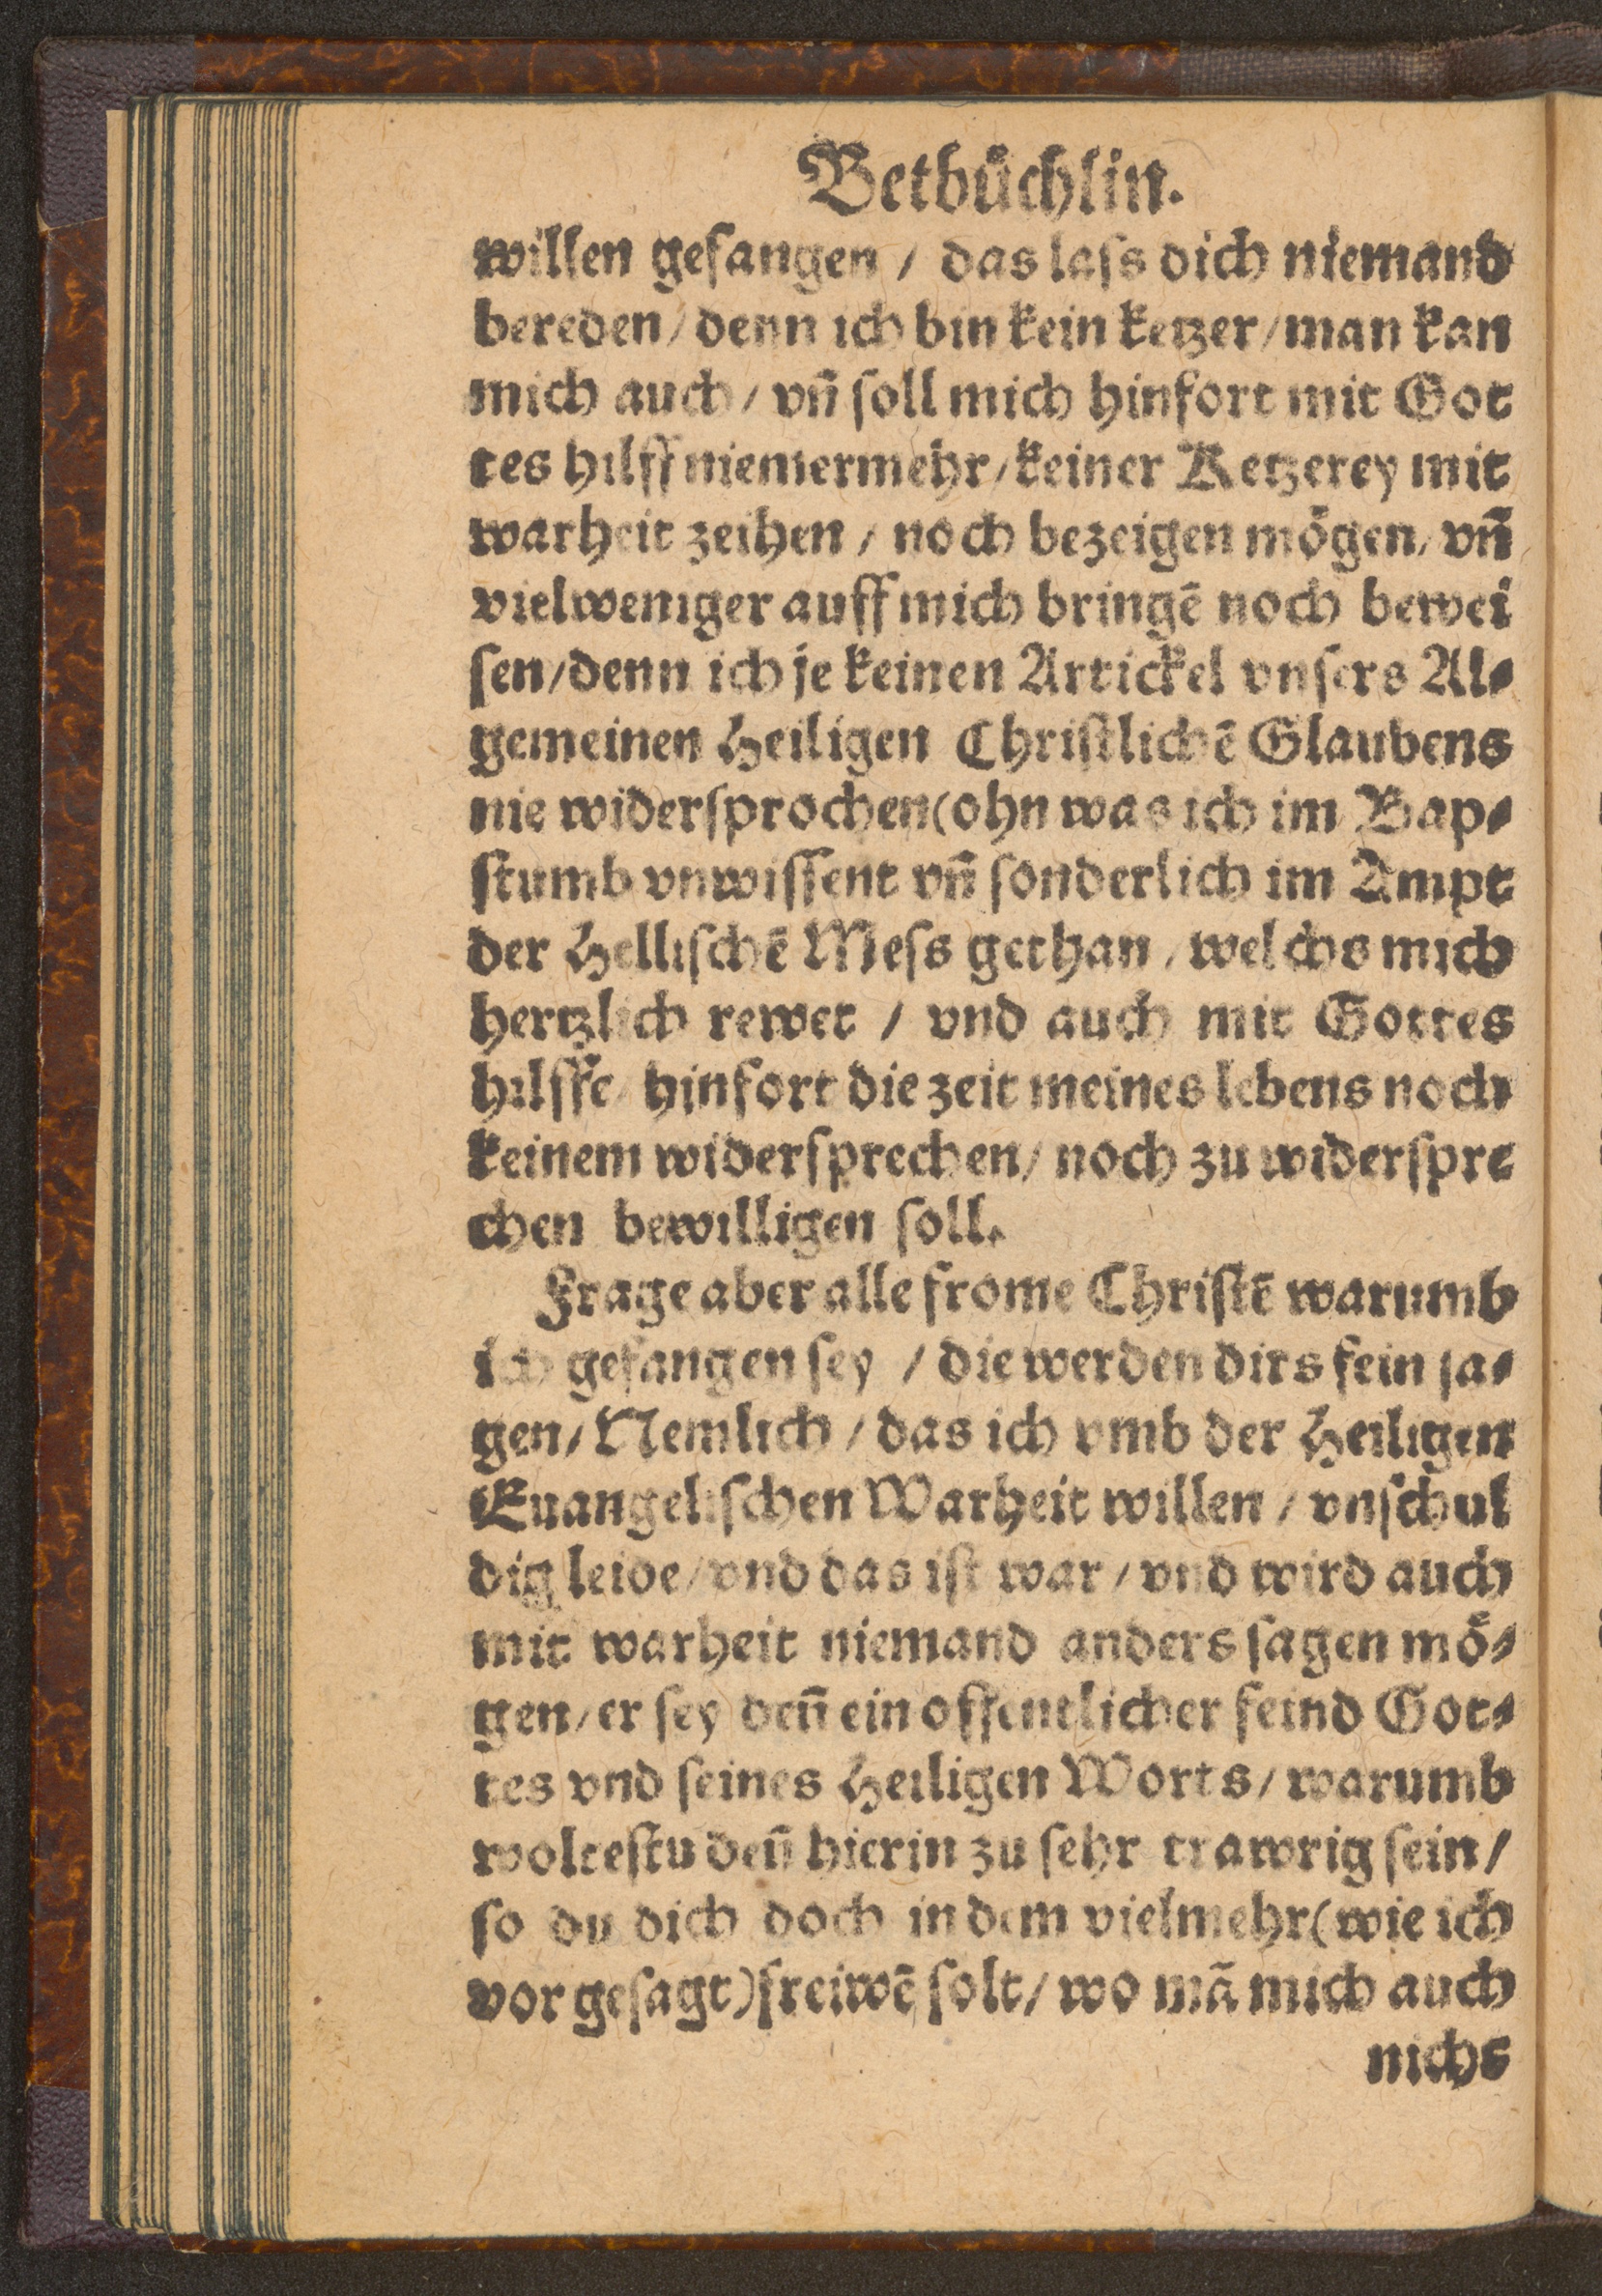 Betbüchlin.
willen gefangen / das laſs dich niemand
bereden / denn ich bin kein ketzer / man kan
mich auch / vñ ſoll mich hinfort mit Got
tes hilff niemermehr / keiner Ketzerey mit
warheit zeihen / noch bezeigen mögen / vñ
vielweniger auff mich bringē noch bewei
ſen / denn ich je keinen Artickel vnſers Al⸗
gemeinen Heiligen Chriſtlichē Glaubens
nie widerſprochen (ohn was ich im Bap⸗
ſtumb vnwiſſent vñ ſonderlich im Ampt
der Helliſchē Meſs gethan / welchs mich
hertzlich rewet / vnd auch mit Gottes
hilffe / hinfort die zeit meines lebens noch
keinem widerſprechen / noch zu widerſpre
chen bewilligen ſoll.
Frage aber alle frome Chriſtē warumb
ich gefangen ſey / die werden dirs fein ſa⸗
gen / Nemlich / das ich vmb der Heiligen
Euangeliſchen Warheit willen / vnſchul
dig leide / vnd das iſt war / vnd wird auch
mit warheit niemand anders ſagen mö⸗
gen / er ſey deñ ein offentlicher feind Got⸗
tes vnd ſeines Heiligen Worts / warumb
wolteſtu deñ hierin zu ſehr trawrig ſein /
ſo du dich doch in dem vielmehr (wie ich
vor geſagt) freiwē ſolt / wo mā mich auch
nichs